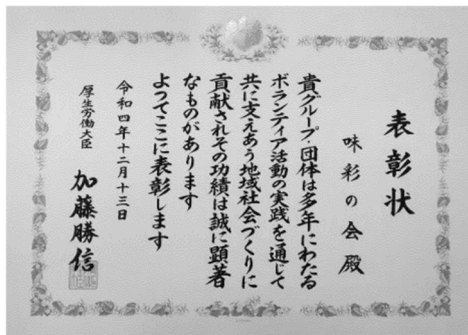 表彰状
味彩の会殿
貴グループ・団体は多年にわたる
ボランティア活動の実践を通じて
共に支えあう地域社会づくりに
貢献されその功績は誠に顕著
なものがあります
よつてここに表彰します
令和四年十二月十三日
厚生労働大臣 加藤勝信